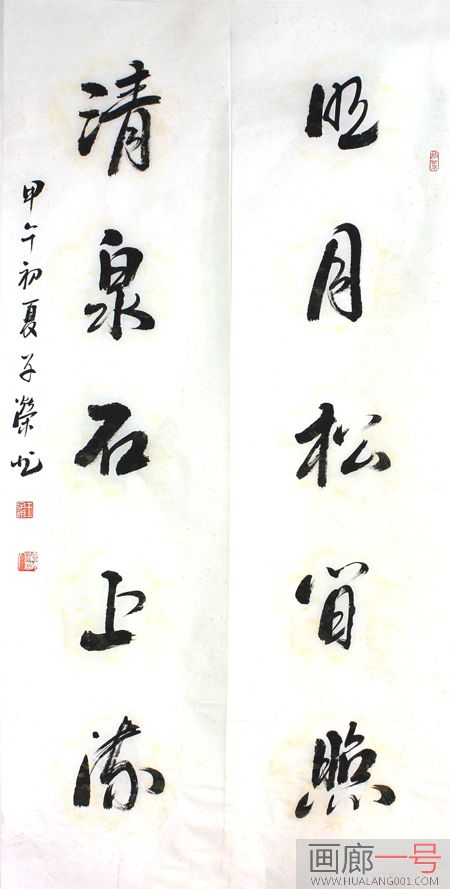 明月松间照
清泉石上流
甲午初夏子荣书
画廊一号
WWW.HUALANG001.COM